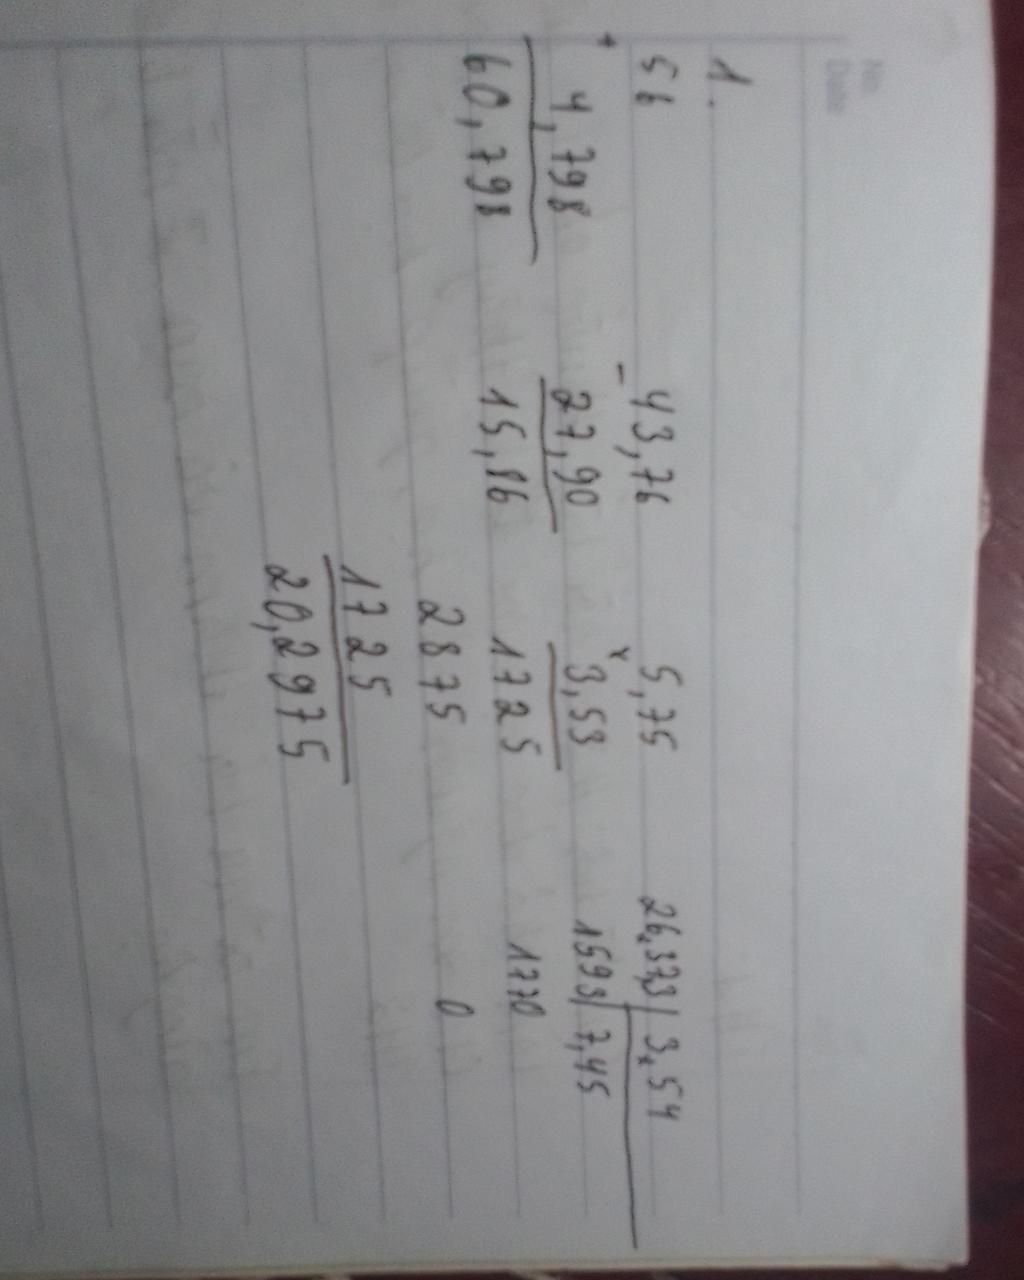 No.
Date
1.
56 - 43,76 5,75 26,373 | 3,54
+ 4,798 27,90 x 3,53 1593 | 7,45
60,798 15,86 1725 1770
2875 0
1725
20,2975